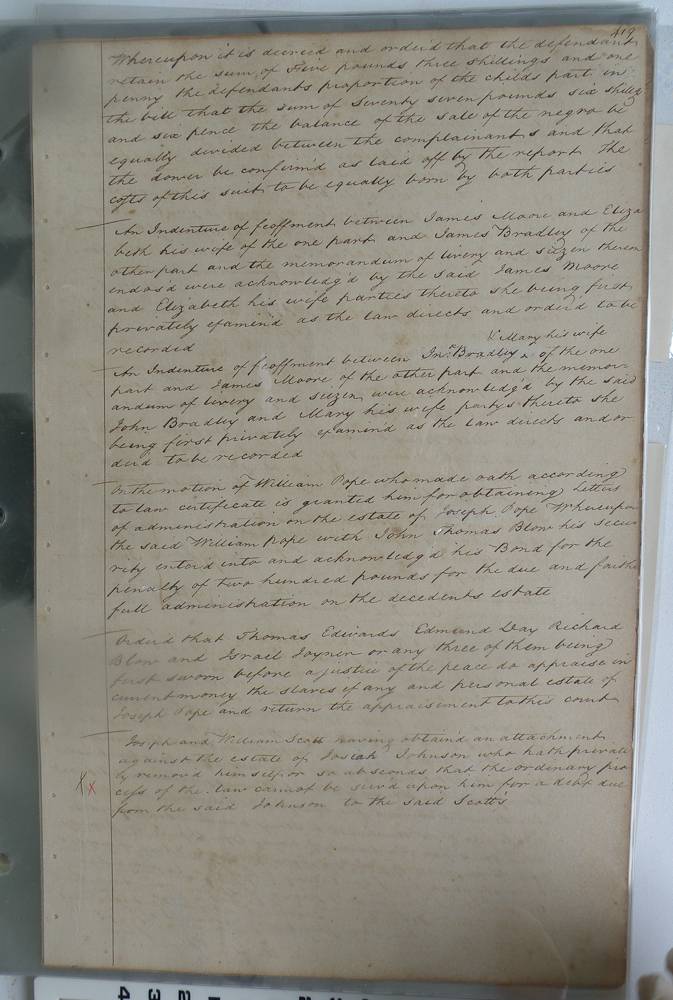 419
Whereupon it is decreed and orderd that the defendant
retain the sum of Five pounds three shillings and one
penny the defendants proportion of the childs part in
the bill that the sum of seventy seven pounds six shillgs
and six pence the balance of the sale of the negro be
equally divided between the complainants and that
the dower be confirmd as laid off by the report The
costs of this suit to be equally born by both parties
An Indenture of feoffment between James Moore and Eliza
beth his wife of the one part and James Bradley of the
other part and the memorandum of livery and seizen thereon
endos'd were acknowledg'd by the said James Moore
and Elizabeth his wife parties thereto she being first
privately examin'd as the law directs and order'd to be
recorded
& Mary his wife
An Indenture of feoffment between Jno. Bradley ^ of the one
part and James Moore of the other part and the memor-
andum of livery and seizen were acknowledg'd by the said
John Bradley and Mary his wife partys thereto she
being first privately examin'd as the Law directs and or
der'd to be recorded
On the motion of William Pope who made oath according
to law certificate is granted him for obtaining Letters
of administration on the estate of Joseph Pope Whereupon
the said William Pope with John Thomas Blow his secu
rity enter'd into and acknowledg'd his Bond for the
penalty of two hundred pounds for the due and faith
full administration on the decedents estate
Order'd that Thomas Edwards Edmund Day Richard
Blow and Israel Joyner or any three of them being
first sworn before a justice of the peace do appraise in
current money the slaves if any and personal estate of
Joseph Pope and return the appraisement to this court
Joseph and William Scott having obtain'd an attachment
against the estate of Josiah Johnson who hath private
ly remov'd himself or so absconds that the ordinary pro
cess of the law cannot be serv'd upon him for a debt due
from the said Johnson to the said Scotts
x
4 3 2